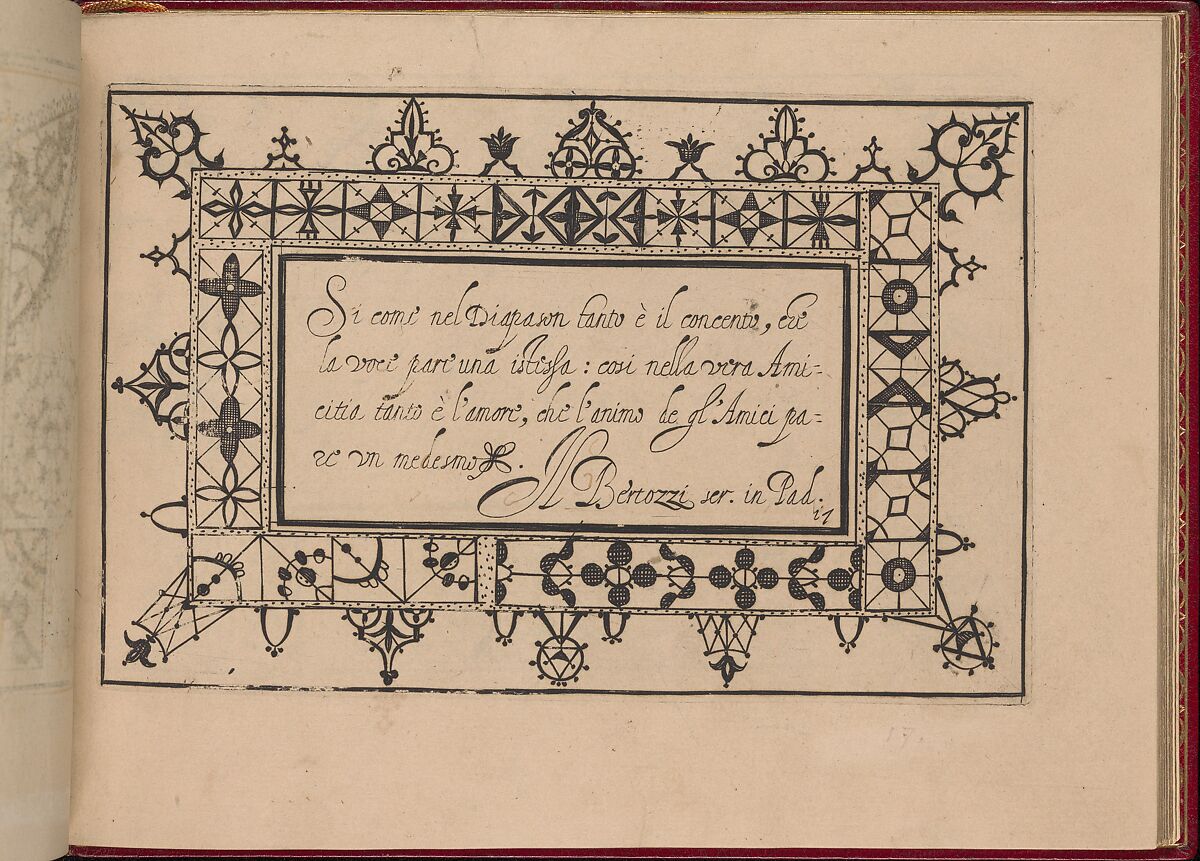 Si come nel Diapason tanto è il concento, che
la voce pare una istessa : cosi nella vera Ami-
citia tanto è l'amore, che l'animo de gl'Amici pa-
re vn medesmo.
Il Bertozzi ser. in Pad.
17
17.